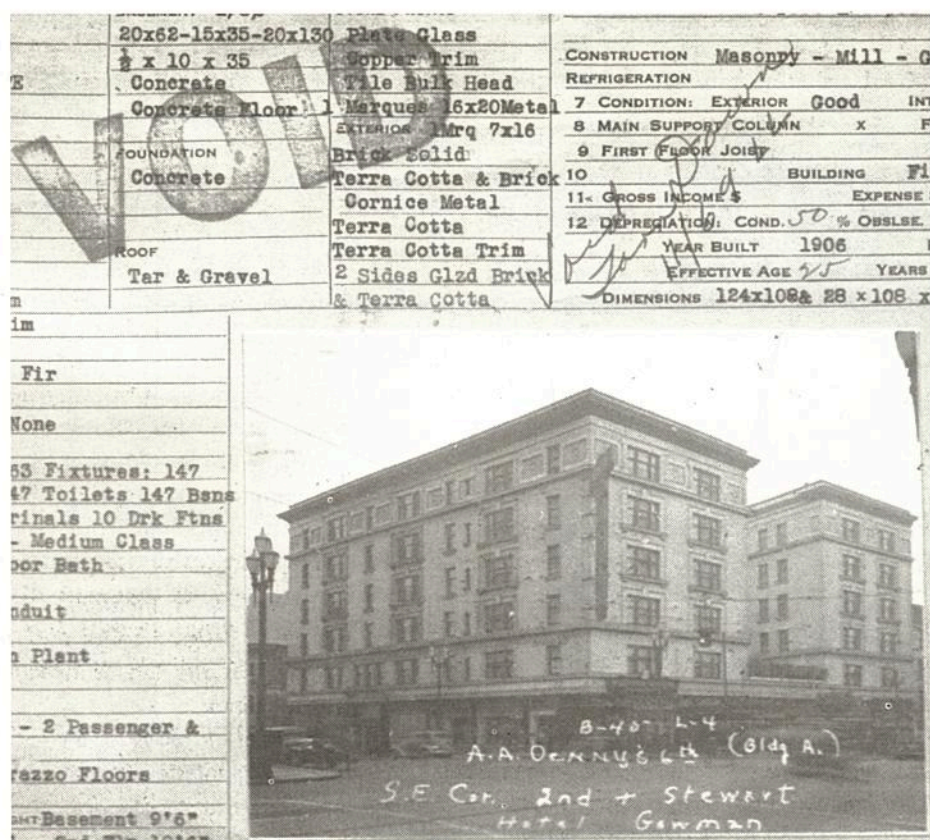 BASEMENT
20x62-15x35-20x130
½ x 10 x 35
Concrete
Concrete Floor
FOUNDATION
Concrete
ROOF
Tar & Gravel
VOID
Plate Glass
Copper Trim
Tile Bulk Head
1 Marques 16x20Metal
EXTERIOR 1Mrq 7x16
Brick Solid
Terra Cotta & Brick
Cornice Metal
Terra Cotta
Terra Cotta Trim
2 Sides Glzd Brick
& Terra Cotta
CONSTRUCTION Masonry - Mill - G
REFRIGERATION
7 CONDITION: EXTERIOR Good INT
8 MAIN SUPPORT COLUMN X F
9 FIRST FLOOR JOIST
10 BUILDING Fi
11 GROSS INCOME $ EXPENSE
12 DEPRECIATION: COND. 50 % OBSLSE.
YEAR BUILT 1906
EFFECTIVE AGE 25 YEARS
DIMENSIONS 124x108& 28 x 108 x
im
Fir
None
63 Fixtures: 147
47 Toilets 147 Bsns
rinals 10 Drk Ftns
- Medium Class
oor Bath
nduit
n Plant
- 2 Passenger &
razzo Floors
Basement 9'6"
B-40 L-4
A.A. DENNY'S 6th (Bldg A.)
S.E Cor. 2nd + Stewart
Hotel Gowman